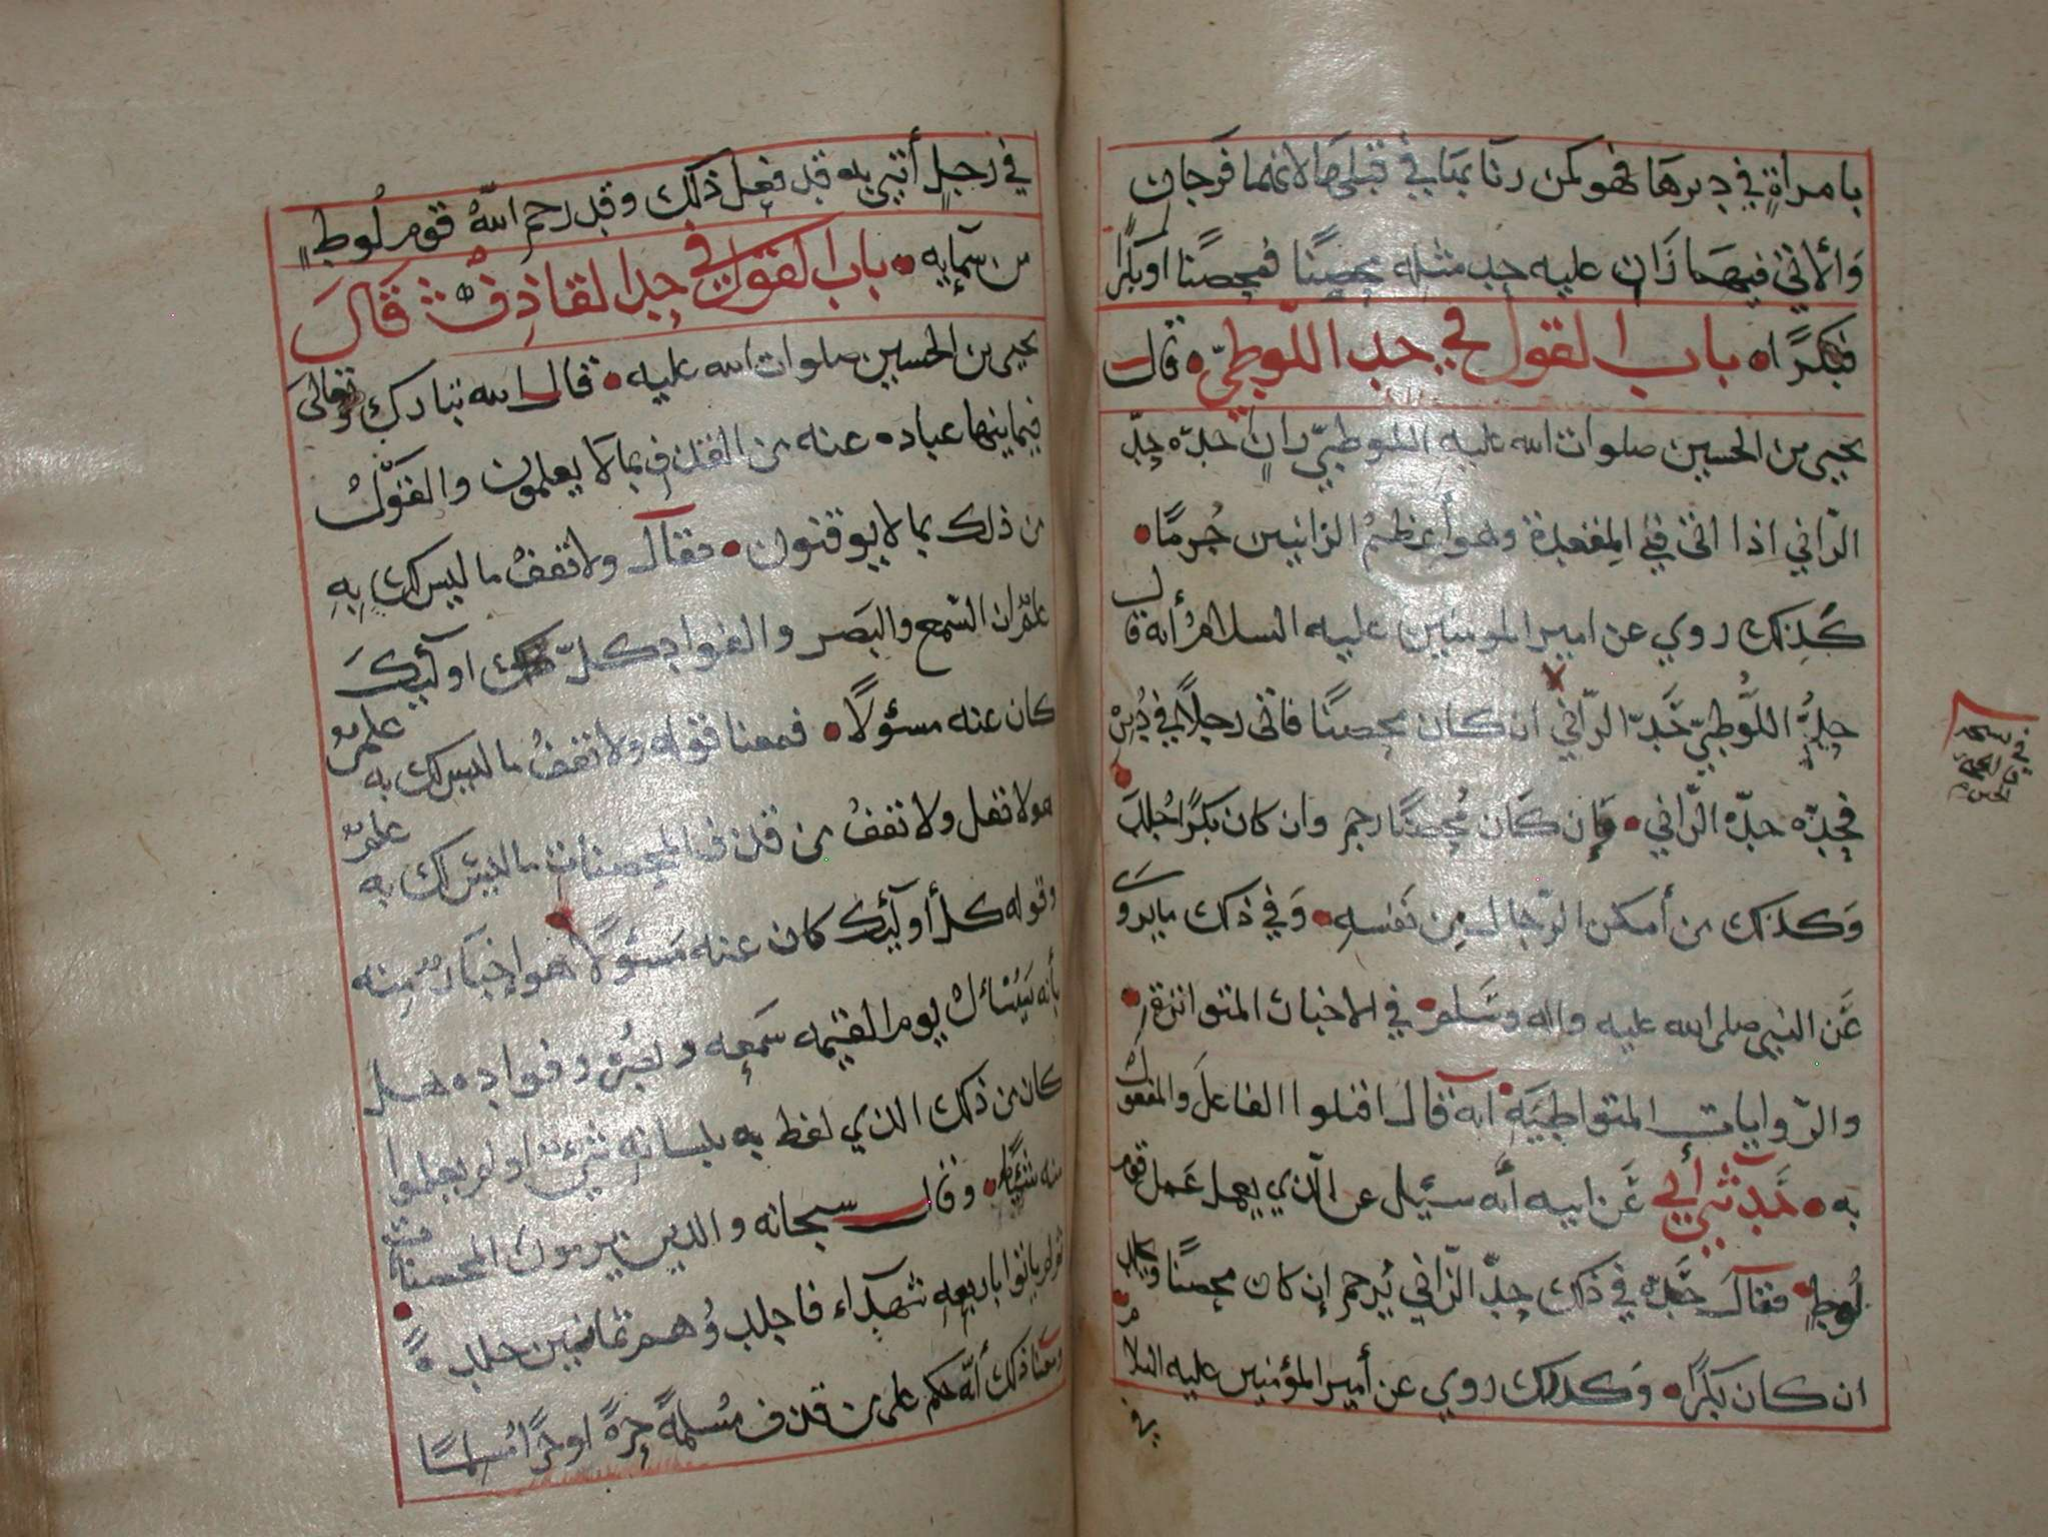 بامراةٍ في دبرها فهو كمن زنا بها في قبلها لانهما فرجان
والاتي فيهما زانٍ عليه حد مثله محصنًا فمحصنًا او بكرًا
فبكرًا • باب القول في حد اللوطيّ • قال
يحيى بن الحسين صلوات الله عليه اللوطيّ زانٍ حدّه حدّ
الزّاني اذا اتى في المقعدة وهو أعظم الزانيين جُرمًا •
كذلك روي عن امير المومنين عليه السلام أنه قال
حدُّ اللّوطيّ حَدّ الزّاني ان كان محصنًا فاتى رجلاً في دُبرٍ
فحدّه حدّ الزّاني • فإن كَان مُحصنًا رجم وان كان بكرًا جُلِدَ •
وَكذلك من أمكن الرّجال مِن نَفسِهِ • وَفي ذلك ما يروى
عَن النبي صلى الله عليه واله وسَلم • في الاخبار المتواترة •
والرّوايات المتواطيَه • انه قال اقتلوا الفاعلَ والمفعول
به • حَدّثني أبي عَن ابيه أنه سئيل عن الّذي يعمل عَمل قوم
لُوطٍ • فقال حَدّه في ذلك حدّ الزّاني يُرجم إن كان محصنًا ويجلد
ان كان بكرًا • وَكذلك روي عن أمير المؤمنين عليه السلام •
في
في رَجلٍ أُتي به قد فعل ذلك وقد رجم اللهُ قوم لُوطٍ
من سمآيِه • باب القول في حد القاذف قَالَ
يحيى بن الحسين صلوات الله عليه • قال الله تبارك وتعالى
فيما ينها عباده عنه من القذف بما لا يعلمون والقوّل
من ذلك بما لا يوقنون • فقال ولا تقفُ ما ليس لك بِهِ
علمٌ ان السّمع والبَصر والفواد كلّ اوليِك
كان عنه مسئولًا • فمعنا قوله ولا تقفُ ما ليس لك به علمٌ
هو لا تقل ولا تقفُ من قذف المحصنات ما ليسَ لك به علمٌ
وقوله كلّ أوليِك كان عنه مَسئولًا هو إخبارٌ مِنه
بأنه يَسئل يوم القيمه سَمعِه وبصرُه وفواده هل
كان من ذلك الذي لفظ به بلسانهِ شيءٌ او لم يعلموا
منه شيئًا • وقال سبحانه والذين يرمون المحصنات
ثم لم ياتوا باربعهِ شهدَآء فاجلدوُهم ثمانين جلدةً •
ومَعنا ذلك أنه حكم على من قذف مُسلمةً حرّةً او حرًّا مُسلمًا